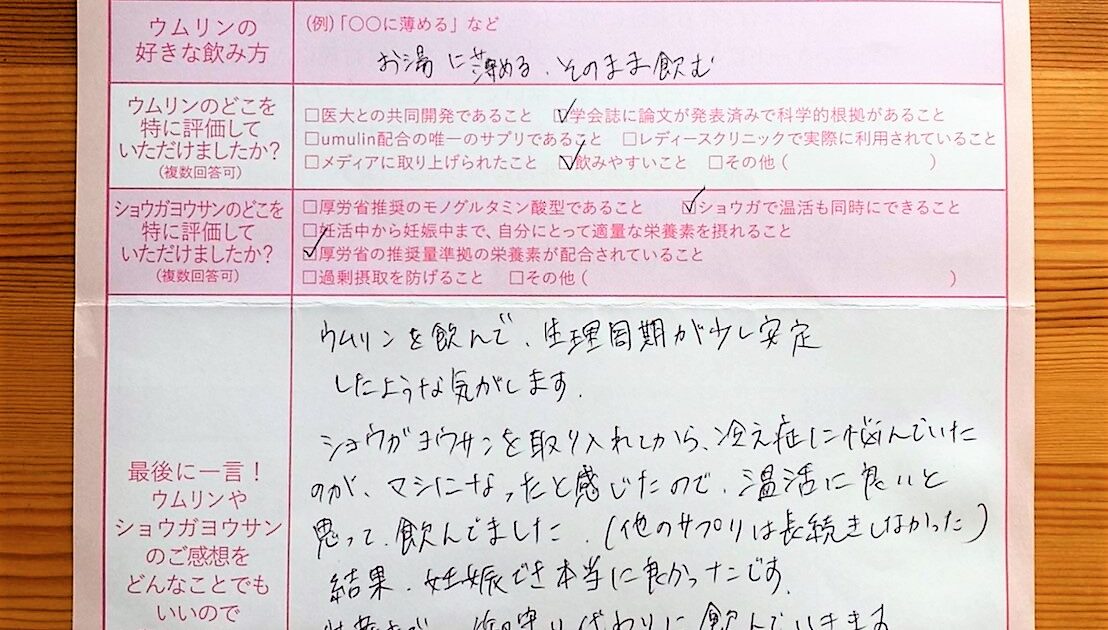 ウムリンの
好きな飲み方
(例)「〇〇に薄める」など
お湯に薄める、そのまま飲む
ウムリンのどこを
特に評価して
いただけましたか?
(複数回答可)
□医大との共同開発であること ☑学会誌に論文が発表済みで科学的根拠があること
□umulin配合の唯一のサプリであること □レディースクリニックで実際に利用されていること
□メディアに取り上げられたこと ☑飲みやすいこと □その他( )
ショウガヨウサンのどこを
特に評価して
いただけましたか?
(複数回答可)
□厚労省推奨のモノグルタミン酸型であること ☑ショウガで温活も同時にできること
□妊活中から妊娠中まで、自分にとって適量な栄養素を摂れること
☑厚労省の推奨量準拠の栄養素が配合されていること
□過剰摂取を防げること □その他( )
最後に一言!
ウムリンや
ショウガヨウサン
のご感想を
どんなことでも
いいので
ウムリンを飲んで、生理周期が少し安定
したような気がします。
ショウガヨウサンを取り入れてから、冷え症に悩んでいた
のが、マシになったと感じたので、温活に良いと
思って、飲んでました。(他のサプリは長続きしなかった)
結果、妊娠でき本当に良かったです。
代わりに飲んでいきます